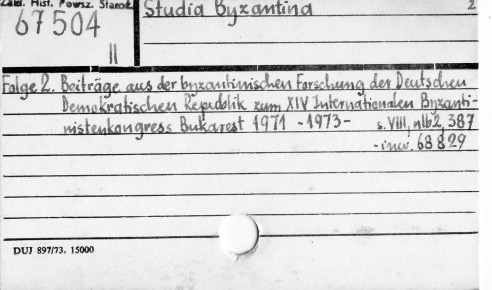 Zakł. Hist. Powsz. Staroż.
67504
II
Studia Byzantina 2
Folge 2. Beiträge aus der byzantinischen Forschung der Deutschen
Demokratischen Republik zum XIV Internationalen Byzanti-
nistenkongress Bukarest 1971 - 1973 -
s. VIII, nlb 2, 387
- inw. 68829
DUJ 897/73. 15000